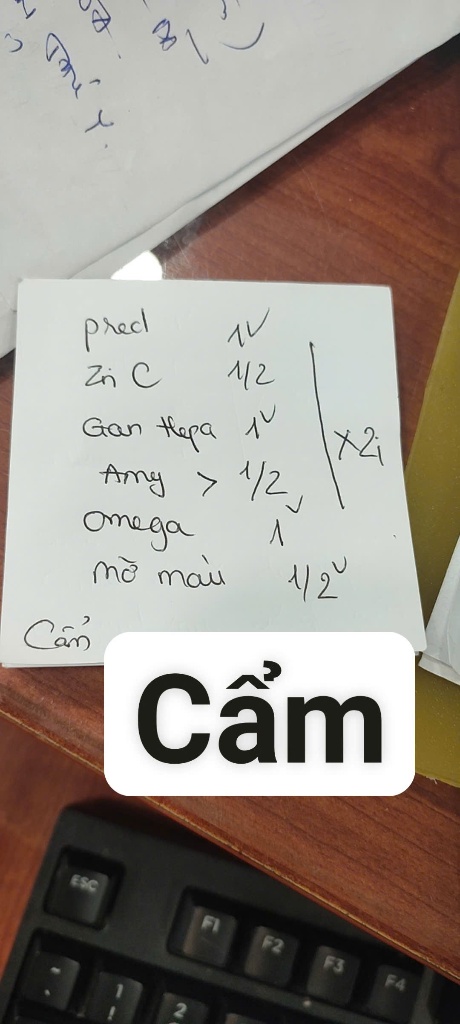 pred 1v
Zn C 1/2
Gan Hepa 1v
Amy > 1/2
x2i
Omega 1v
mỡ máu 1/2v
Cẩm
Cẩm
ESC
F1
F2
F3
F4
1
2